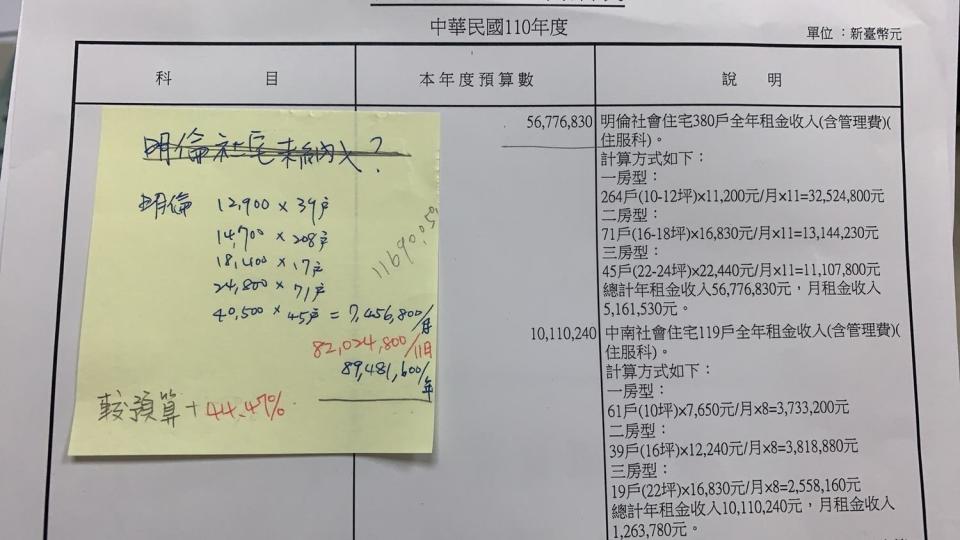 中華民國110年度
單位：新臺幣元
科 目
本年度預算數
說 明
明倫社宅未納入？
明倫 12,900 × 39戶
14,700 × 208戶
18,400 × 17戶
24,800 × 71戶
40,500 × 45戶 = 7,456,800/月
82,024,800/11月
89,481,600/年
較預算 + 44.47%
56,776,830
明倫社會住宅380戶全年租金收入(含管理費)(
住服科)。
計算方式如下：
一房型：
264戶(10-12坪)×11,200元/月×11=32,524,800元
二房型：
71戶(16-18坪)×16,830元/月×11=13,144,230元
三房型：
45戶(22-24坪)×22,440元/月×11=11,107,800元
總計年租金收入56,776,830元，月租金收入
5,161,530元。
10,110,240
中南社會住宅119戶全年租金收入(含管理費)(
住服科)。
計算方式如下：
一房型：
61戶(10坪)×7,650元/月×8=3,733,200元
二房型：
39戶(16坪)×12,240元/月×8=3,818,880元
三房型：
19戶(22坪)×16,830元/月×8=2,558,160元
總計年租金收入10,110,240元，月租金收入
1,263,780元。